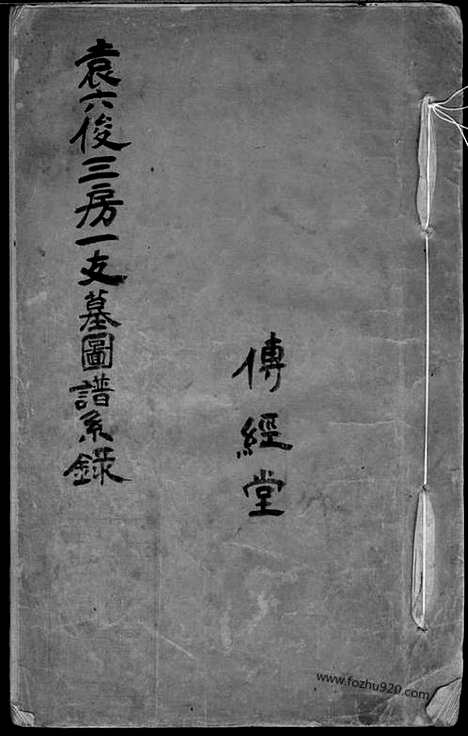 傳經堂
袁六俊三房一支墓圖譜系錄
www.fozhu920.com